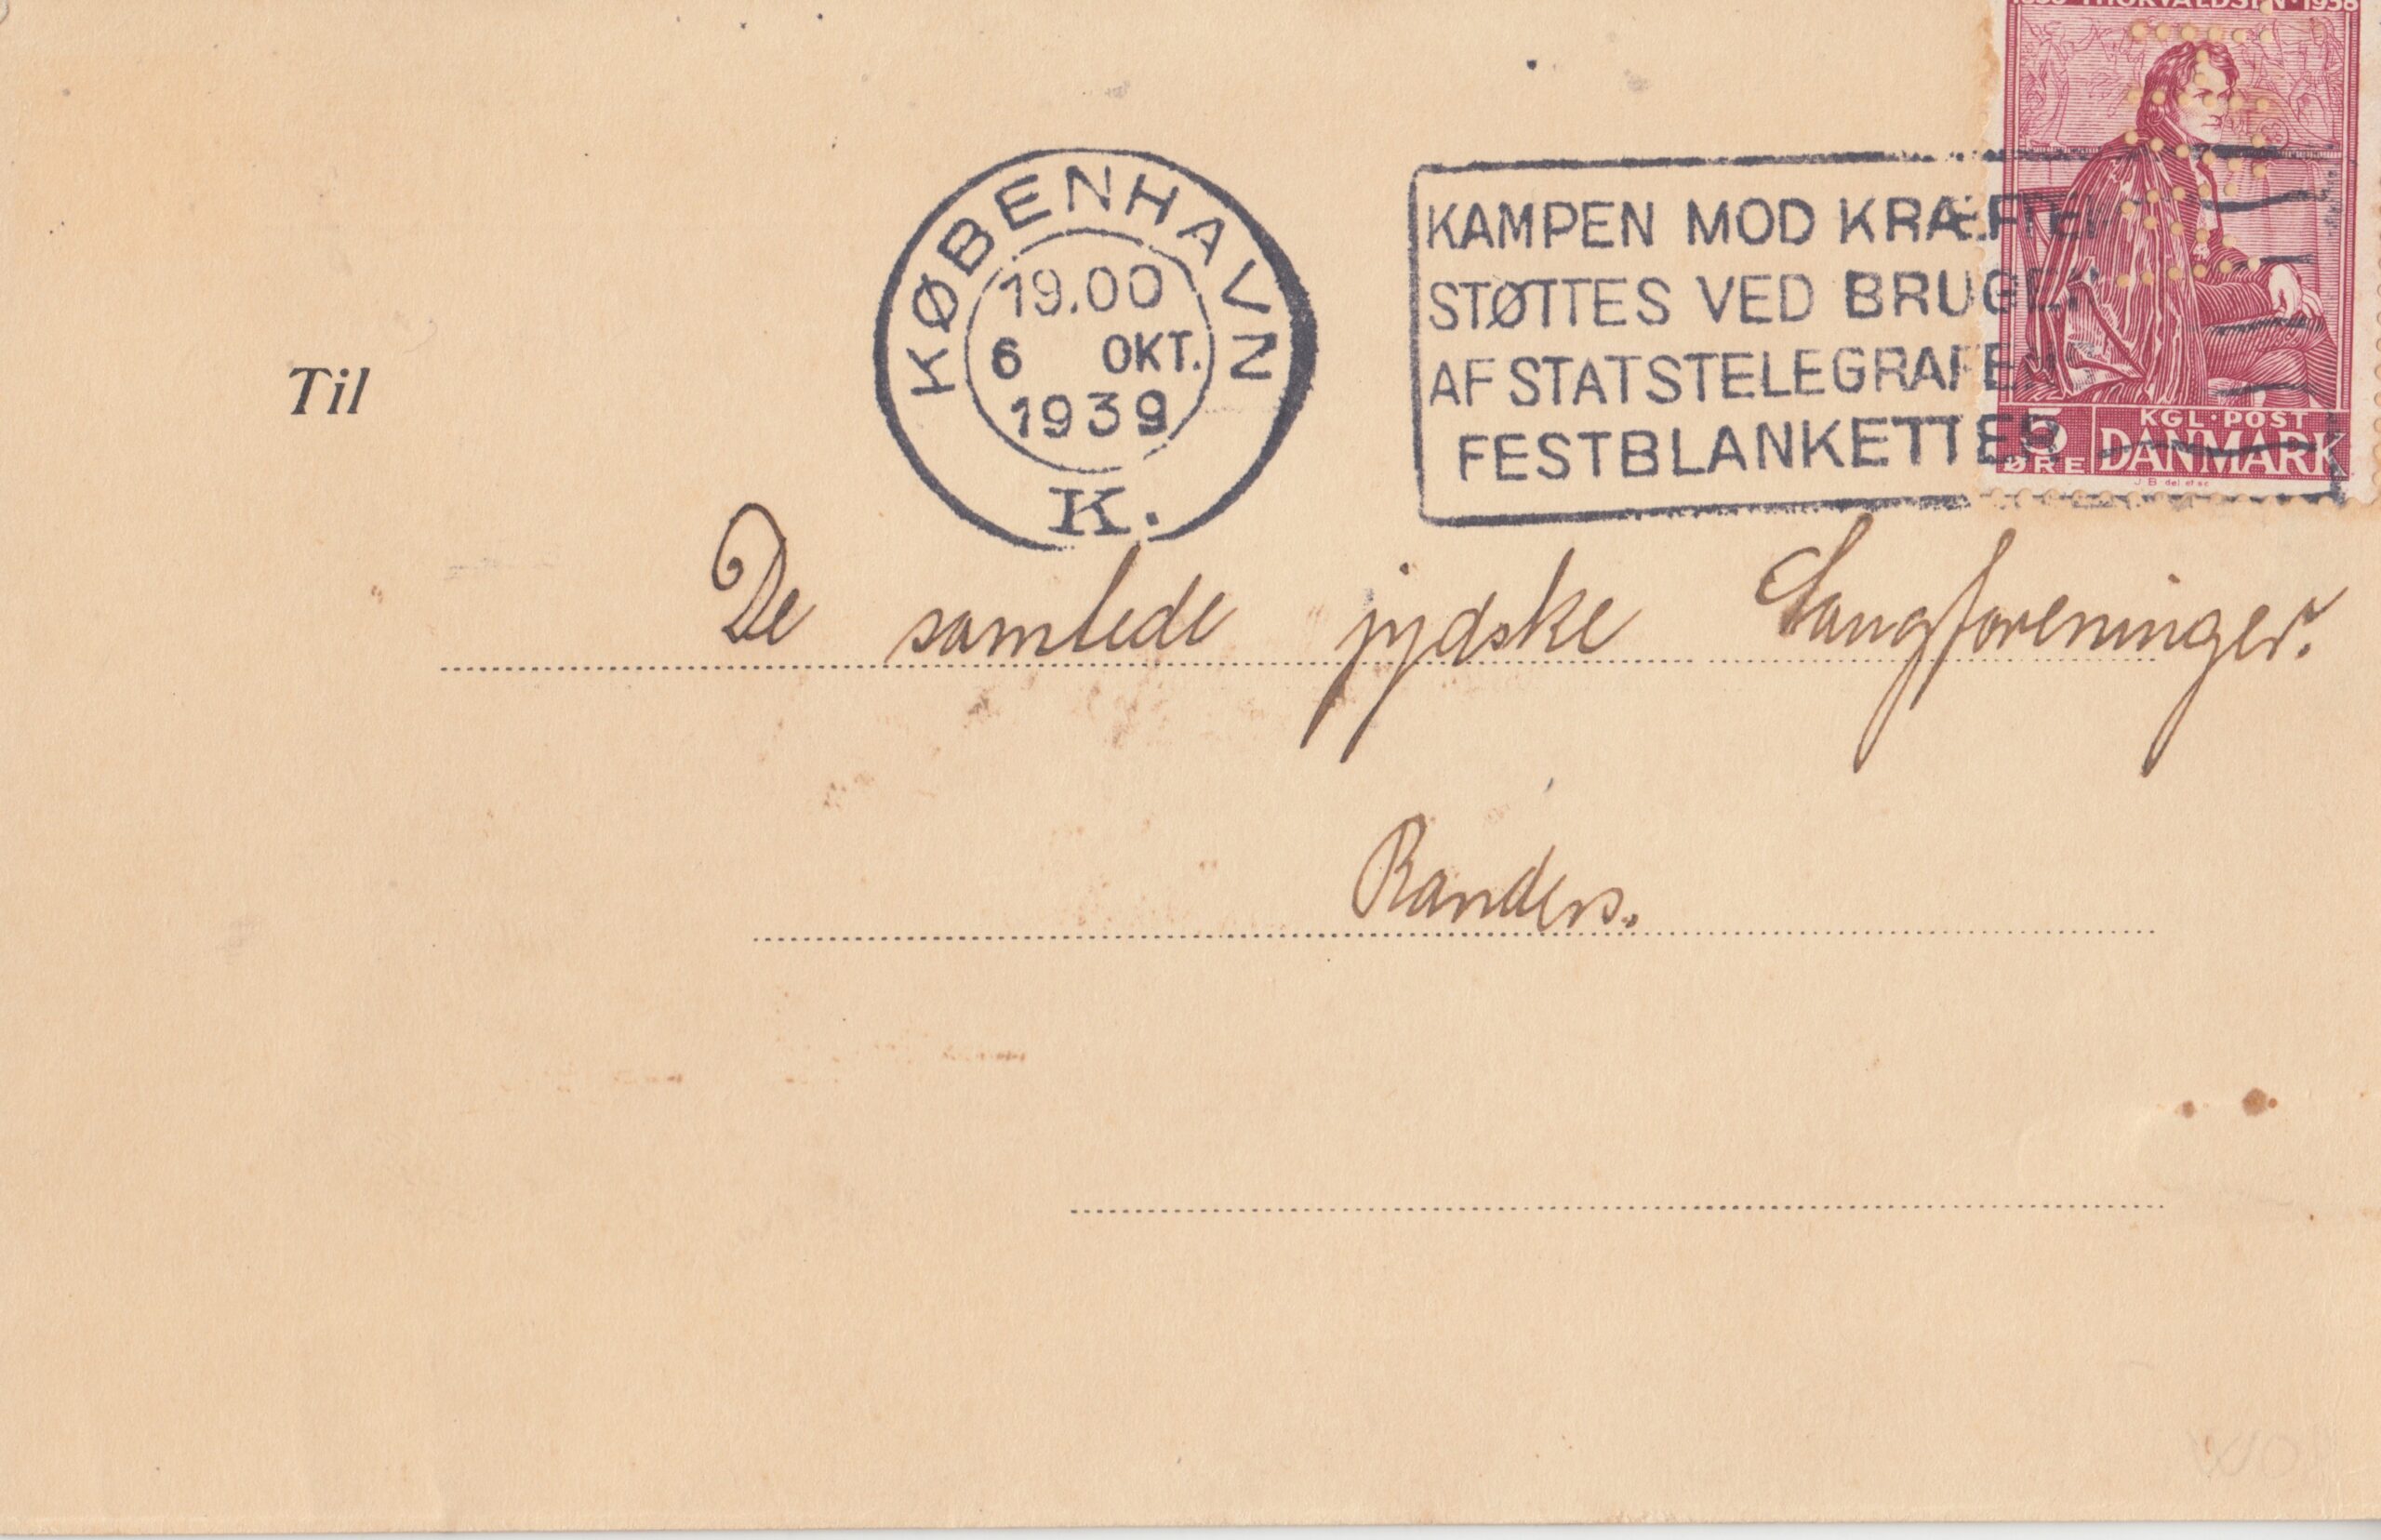 1838 THORVALDSEN · 1938
KØBENHAVN
19.00
6 OKT.
1939
K.
KAMPEN MOD KRÆFTEN
STØTTES VED BRUGEN
AF STATSTELEGRAFENS
FESTBLANKETTER
KGL·POST
5
ØRE
DANMARK
Til
De samlede jydske Sangforeninger.
Randers.